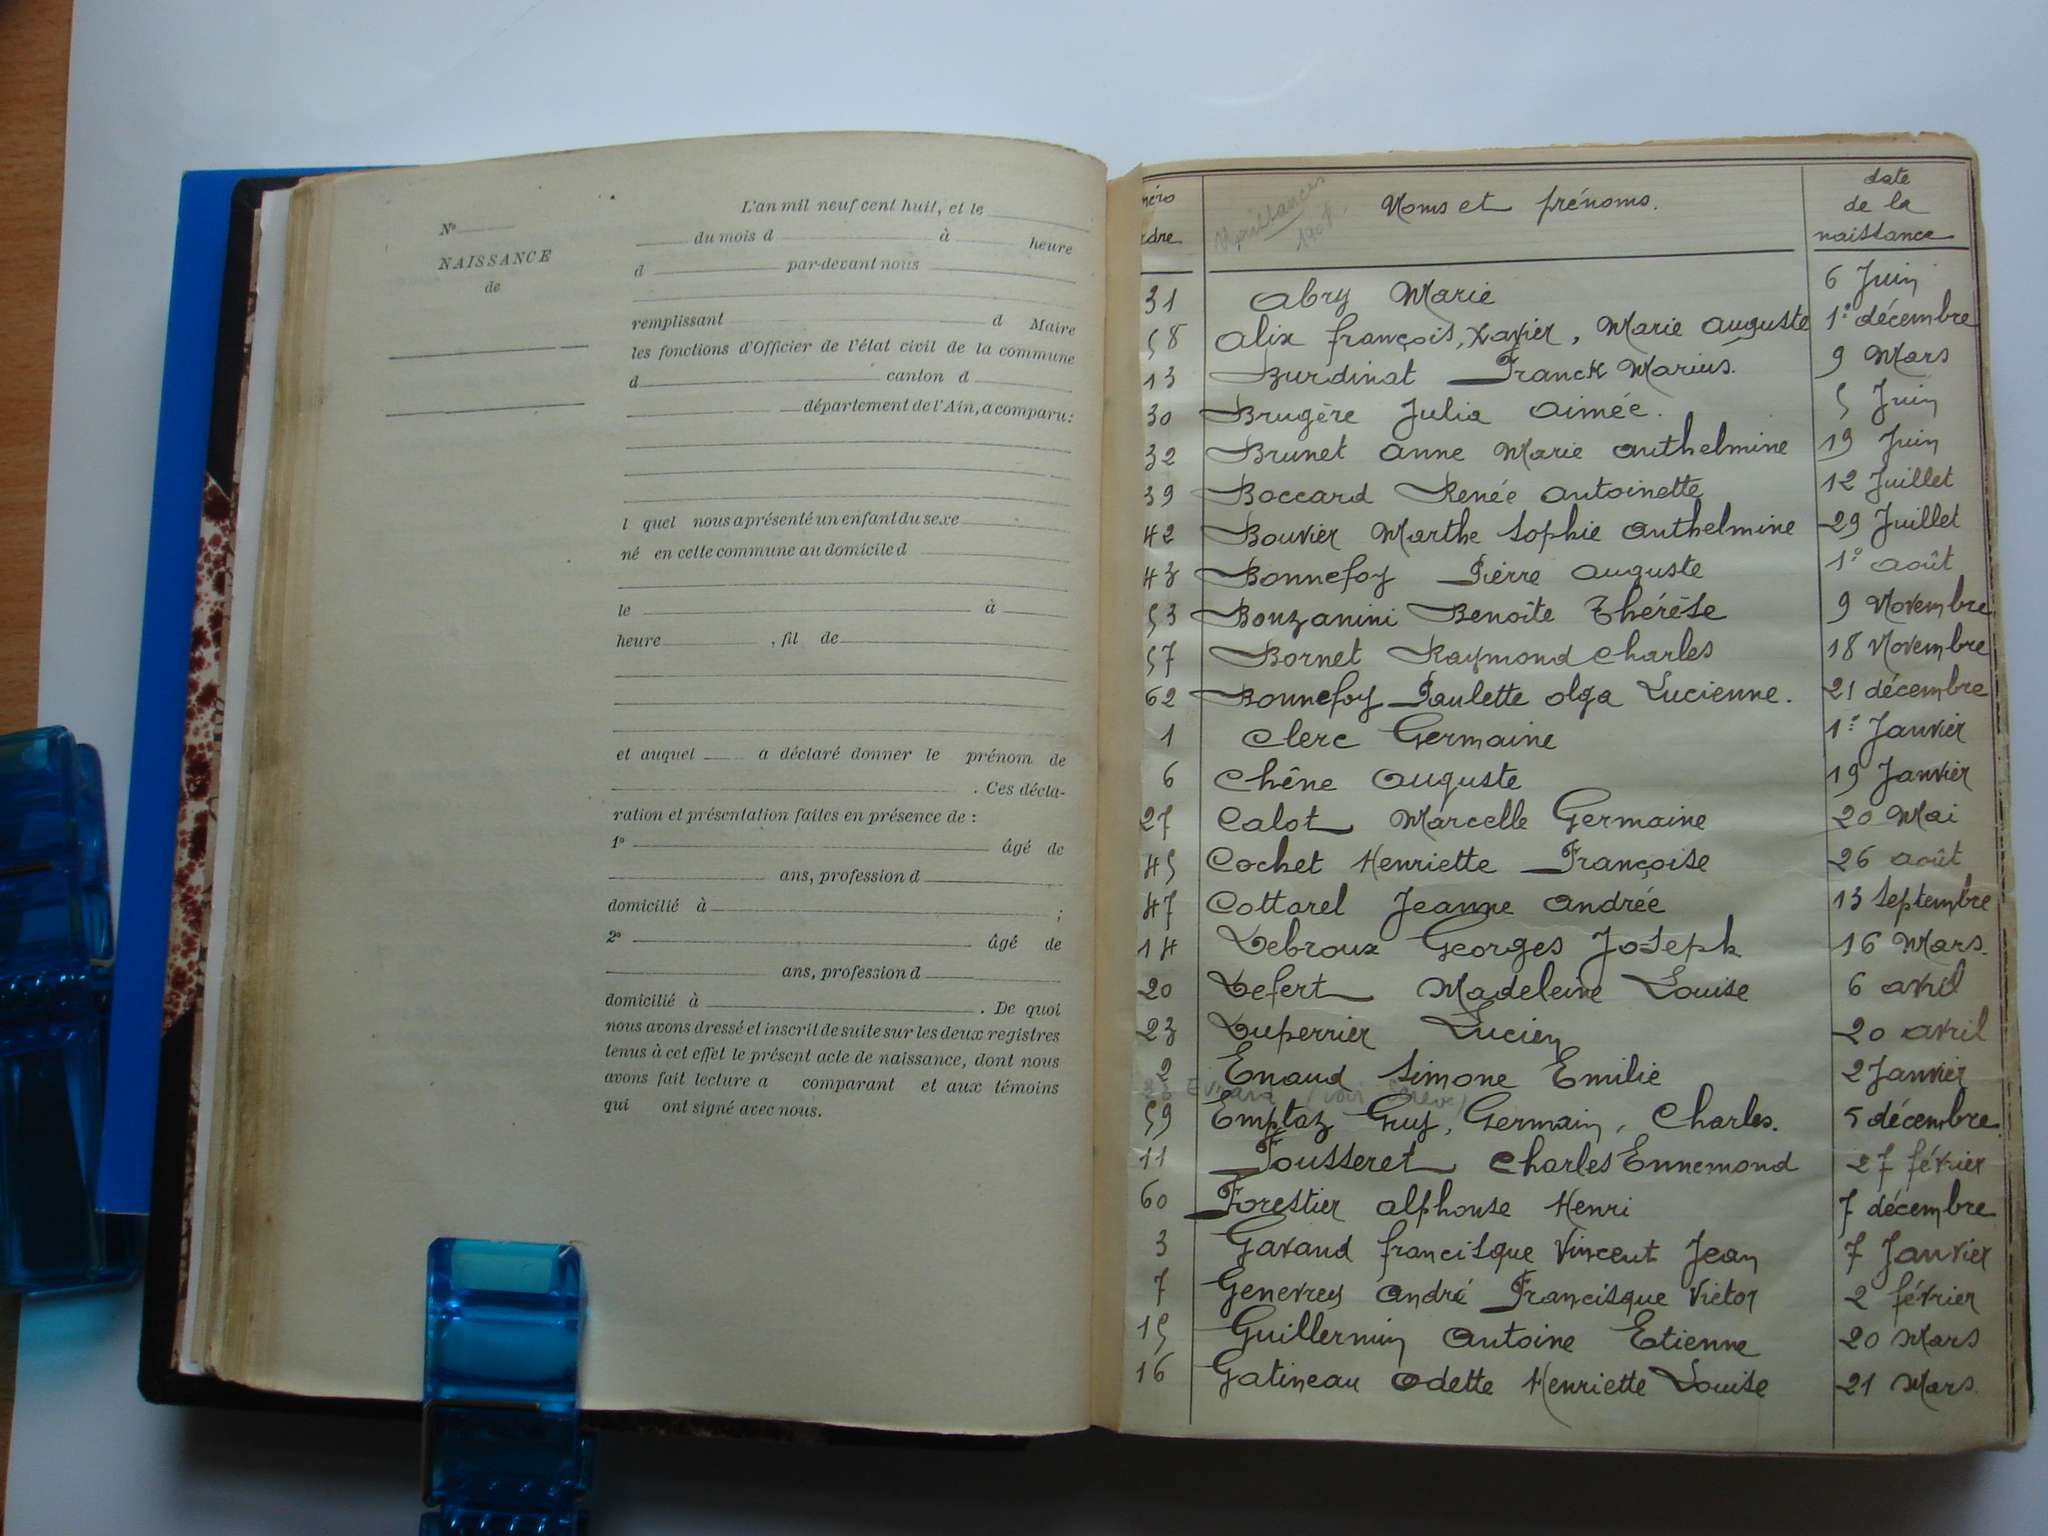 L'an mil neuf cent huit, et le
N°
du mois d à heure
NAISSANCE
d par-devant nous
de
remplissant d Maire
les fonctions d'Officier de l'état civil de la commune
d canton d
département de l'Ain, a comparu :
l quel nous a présenté un enfant du sexe
né en cette commune au domicile d
le à
heure , fil de
et auquel a déclaré donner le prénom de
. Ces décla-
ration et présentation faites en présence de :
1° âgé de
ans, profession d
domicilié à ;
2° âgé de
ans, profession d
domicilié à . De quoi
nous avons dressé et inscrit de suite sur les deux registres
tenus à cet effet le présent acte de naissance, dont nous
avons fait lecture a comparant et aux témoins
qui ont signé avec nous.
méro Noms et prénoms. date
rdre de la
naissance
Naissances
1908
31 Abry Marie 6 Juin
58 Alix françois, Xavier, Marie Auguste 1° décembre
13 Burdinat Franck Marius. 9 Mars
30 Brugère Julia Aimée. 5 Juin
32 Brunet Anne Marie Anthelmine 19 Juin
39 Boccard Renée Antoinette 12 Juillet
42 Bouvier Marthe Sophie Anthelmine 29 Juillet
43 Bonnefoy Pierre Auguste 1° août
53 Bonzanini Benoîte Thérèse 9 Novembre
57 Bornet Raymond Charles 18 Novembre
62 Bonnefoy Paulette Olga Lucienne. 21 décembre
1 Clerc Germaine 1er Janvier
6 Chêne Auguste 19 Janvier
27 Calot Marcelle Germaine 20 Mai
45 Cochet Henriette Françoise 26 août
47 Cottarel Jeanne Andrée 13 Septembre
14 Debroux Georges Joseph 16 Mars.
20 Defert Madeleine Louise 6 avril
23 Duperrier Lucien 20 avril
2 Enaud Simone Emilie 2 Janvier
59 Emptaz Guy, Germain, Charles. 5 décembre
11 Fousseret Charles Ennemond 27 février
60 Forestier Alphonse Henri 7 décembre
3 Gavand francisque Vincent Jean 7 Janvier
7 Genevrey André Francisque Victor 2 février
15 Guillermin Antoine Etienne 20 Mars
16 Gatineau Odette Henriette Louise 21 Mars.